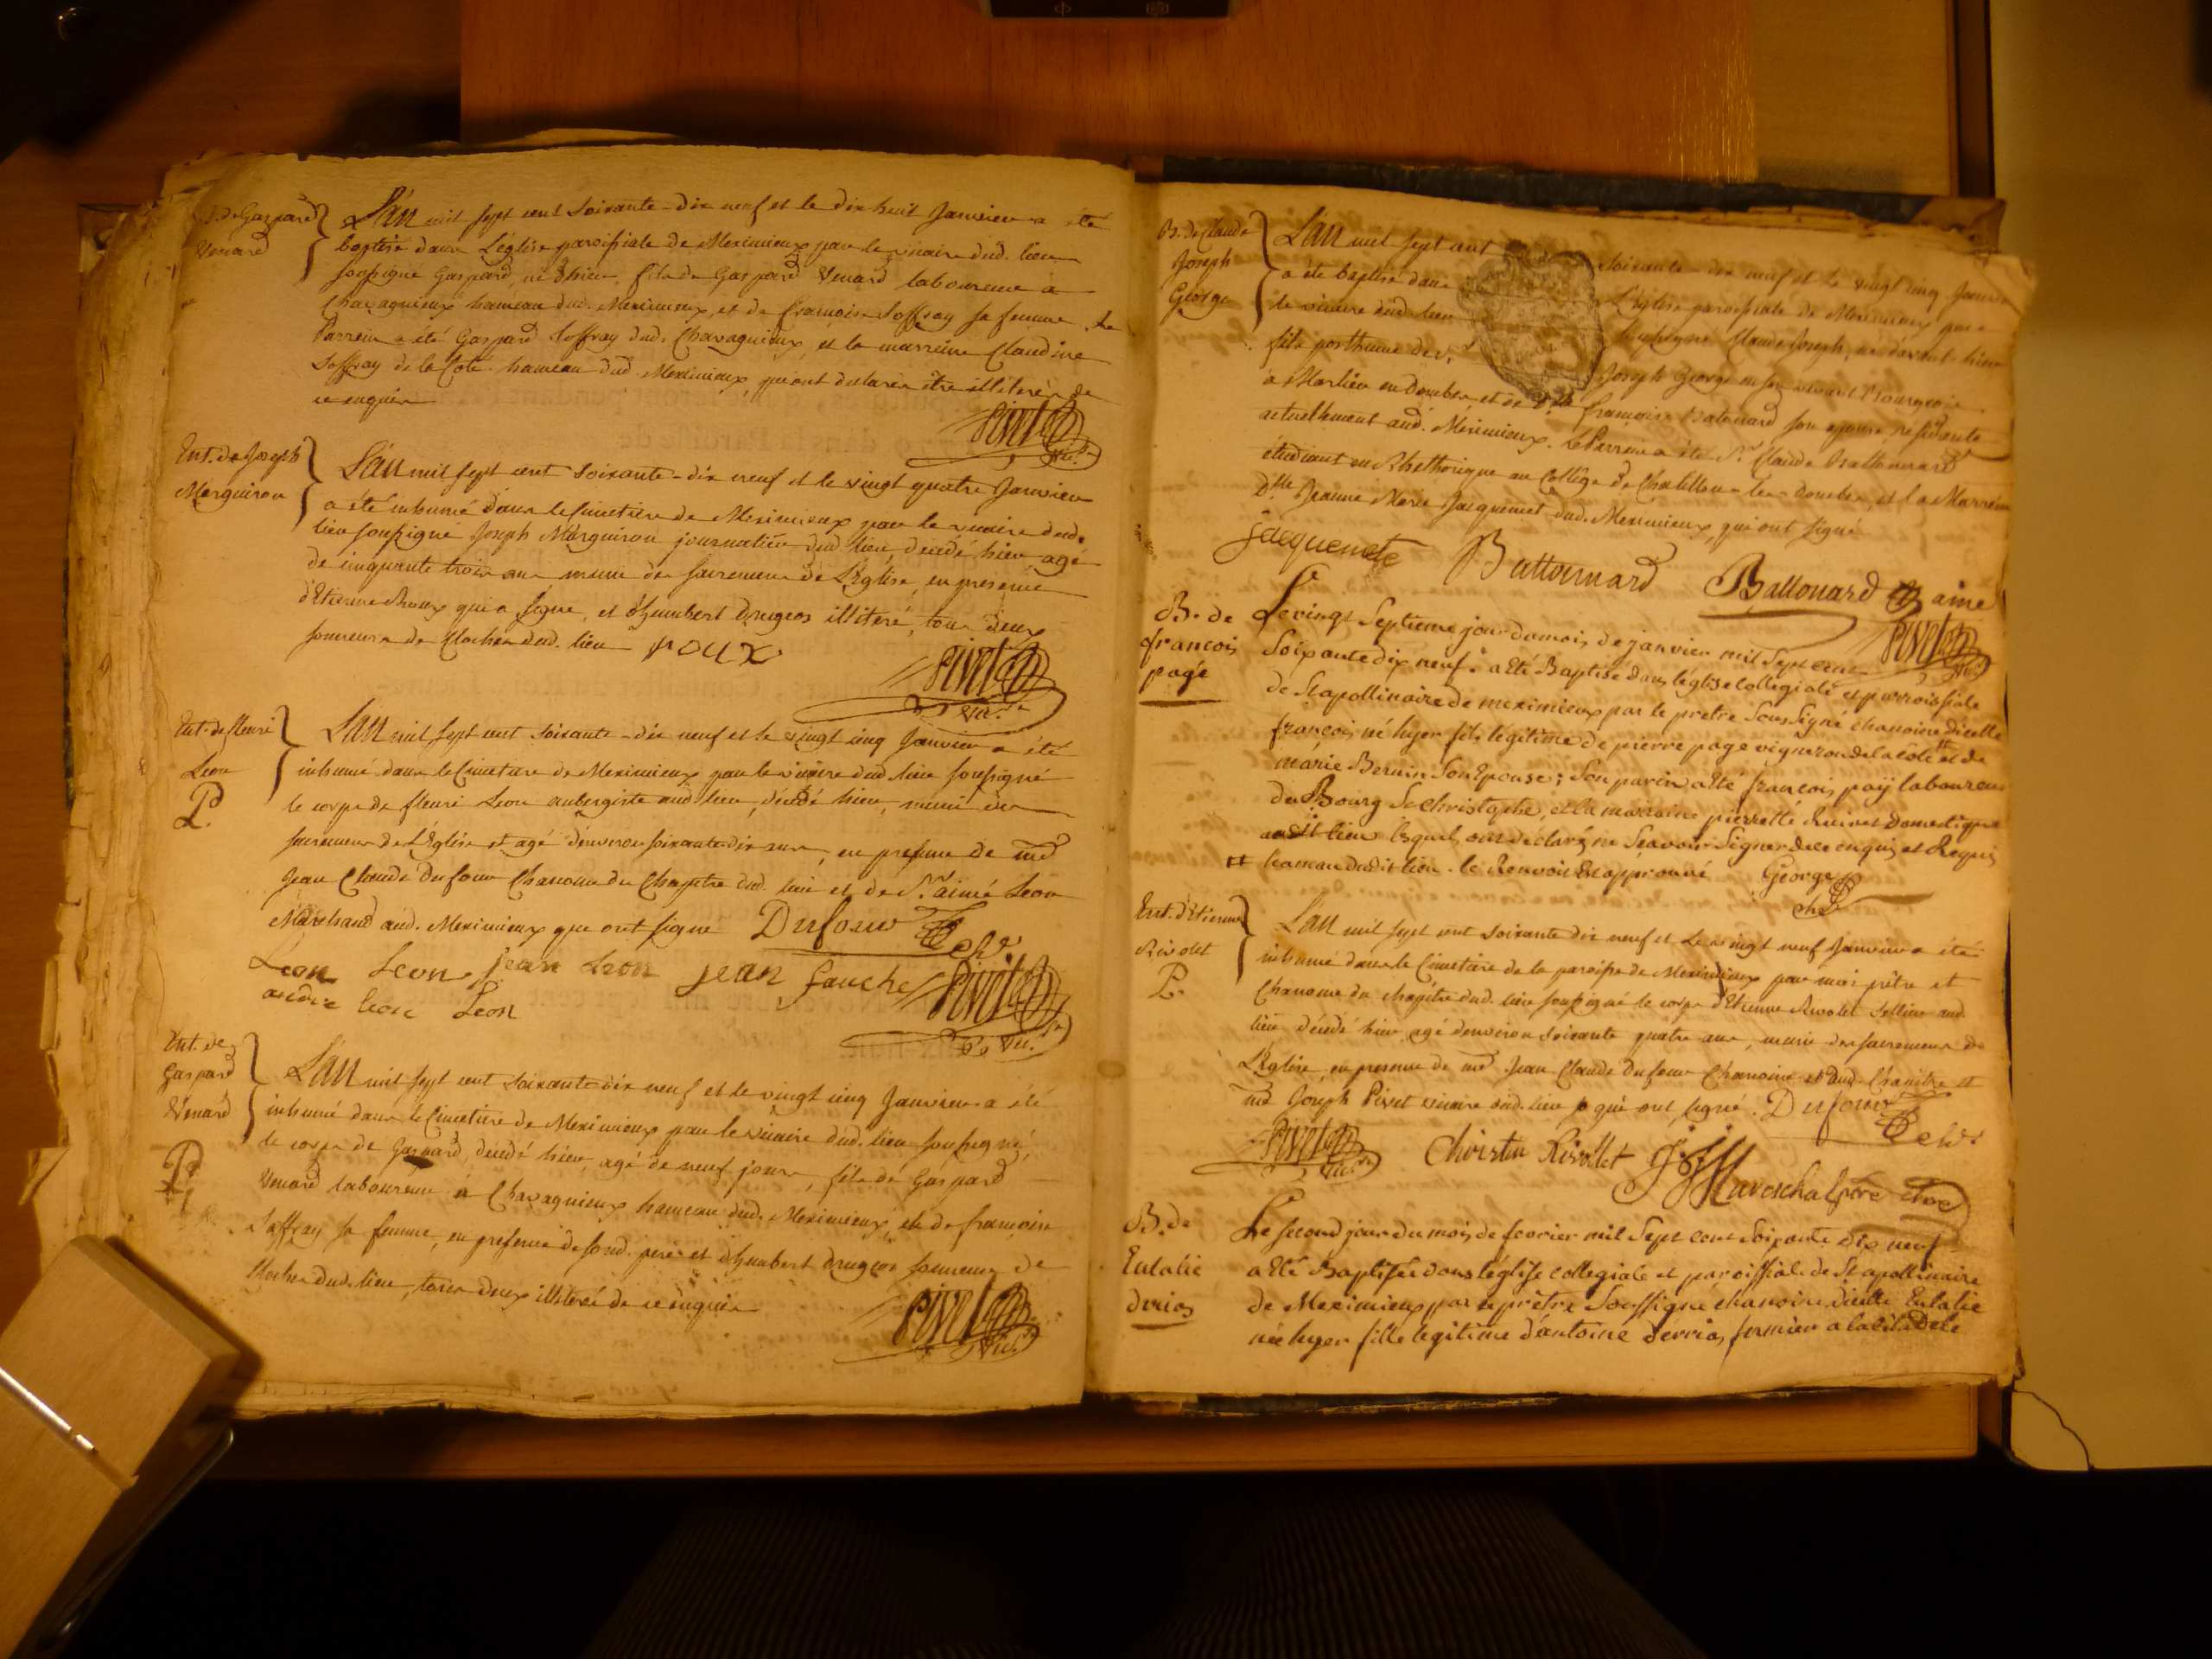 B. de Gaspard
Venard
L'an mil sept cent soixante-dix neuf et le dix huit Janvier a été
baptisé dans L'église paroissiale de Meximieux par le vicaire dud. lieu
soussigné Gaspard, né d'hier, fils de Gaspard Venard laboureur a
Chavagnieux hameau dud. Meximieux, et de françoise Soffray sa femme. Le
Parrein a été Gaspard Soffray dud. Chavagnieux, et la marreine Claudine
Soffray de la Cote hameau dud. Meximieux, qui ont declarés être illiterés de
ce enquis
Pivet
vic.re
Ent. de Joseph
Marguiron
L'an mil sept cent soixante-dix neuf et le vingt quatre Janvier
a été inhumé dans le cimetiere de Meximieux par le vicaire dud.
lieu soussigné Joseph Marguiron journalier dud. lieu, décédé hier, agé
de cinquante trois ans muni des sacremens de L'Eglise, en presence
d'Etienne Roux qui a signé, et d'humbert Drugeos illiteré, tous deux
sonneurs de Cloches dud. lieu roux
Pivet
vic.re
Ent. de fleuri
Leon
P.
L'an mil sept cent soixante-dix neuf et le vingt cinq Janvier a été
inhumé dans le Cimetiere de Meximieux par le vicaire dud. lieu soussigné
le corps de fleuri Leon aubergiste aud. lieu, décédé hier, muni des
sacremens de L'Eglise et agé d'environ soixante dix ans, en presence de mre
Jean Claude Dufour Chanoine du Chapitre dud. lieu et de Sr. aimé Leon
Marchand aud. Meximieux que ont signé Dufour
ch.
Leon Leon jean Leon jean fauche Pivet
Leon
vic.re
Ent. de
Gaspard
Venard
P.
L'an mil sept cent soixante-dix neuf et le vingt cinq Janvier a été
inhumé dans le Cimetiere de Meximieux par le vicaire dud. lieu soussigné,
le corps de Gaspard, décédé hier, agé de neuf jours, fils de Gaspard
Venard laboureur à Chavagnieux hameau dud. Meximieux, et de françoise
Soffray sa femme, en presence de sond. pere et d'humbert Drugeos sonneur de
Cloches dud. lieu, tous deux illiterés de ce enquis
Pivet
vic.re
B. de Claude
Joseph
George
L'an mil sept cent soixante-dix neuf et le vingt cinq Janvier
a été baptisé dans L'église paroissiale de Meximieux par
le vicaire dud. lieu soussigné Claude Joseph, né d'avant-hier
fils posthume de Sr. Joseph George en son vivant Bourgeois
a Marlieu en Dombes et de Dlle françoise Batouard son epouse, residante
actuellement aud. Méximieux. Le Parrein a été Sr. Claude Battouard
étudiant en Rhethorique au Collège de Chatillon-les-Dombes, et la Marreine
Dlle Jeanne Marie Jacquemet dud. Meximieux, qui ont signé
jacquemete Battouard Battouard ainé
Pivet
vic.re
B. de
francois
page
Le vingt Septieme jour du mois de janvier mil Sept cent
Soixante dix neuf a Eté Baptisé dans léglise Collegiale et parroissiale
de St apollinaire de meximieux par le prêtre Soussigné chanoine dicelle
françois né hyer fils légitime de pierre page vigneron de la côte et de
marie Bernin Son Epouse; Son parin a Eté françois pay laboureur
du Bourg St Christophe, et la marraine pierrette Ruivet domestique
audit lieu lesquels ont déclaré ne Sçavoir Signer de ce enquis et Requis
hameau dudit lieu. le Renvois Est approuvé George
ch.
Ent. d'Etienne
Rivolet
P.
L'an mil sept cent soixante dix neuf et le vingt neuf Janvier a été
inhumé dans le Cimetiere de la paroisse de Meximieux par moi prêtre et
Chanoine du chapitre dud. lieu soussigné le corps d'Etienne Rivolet Sellier aud.
lieu décédé hier agé d'environ soixante quatre ans, muni des sacremens de
L'Eglise, en presence de mre Jean Claude Dufour Chanoine dud. Chapitre et
mre Joseph Pivet vicaire dud. lieu qui ont signé. Dufour
ch.
Pivet
vic.re
Christin Rivollet Mareschal prêtre
B. de
Eulalie
dvrios
Le Second jour du mois de fevrier mil Sept cent Soixante dix neuf
a Eté Baptisée dans léglise collegiale et paroissiale de St apollinaire
de Meximieux par le prêtre Soussigné chanoine dicelle Eulalie
née hyer fille legitime d'antoine fermier a la